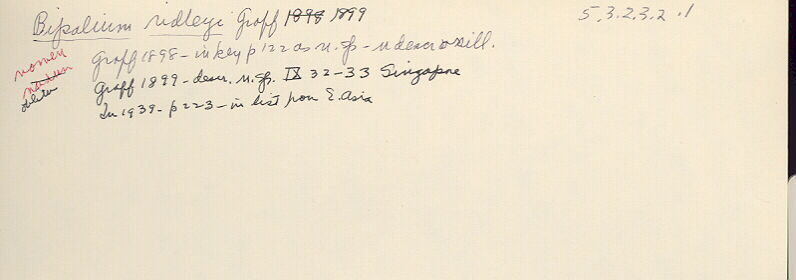 Bipalium ridleyi Graff 1898 1899
5.3.2.3.2.1
Graff 1898 - in key p 122 as n. sp. - n descr or ill.
nomen
nudum
Graff 1899 - descr. n. sp. IX 32-33 Singapore
Lu 1939 - p 223 - in list from E. Asia